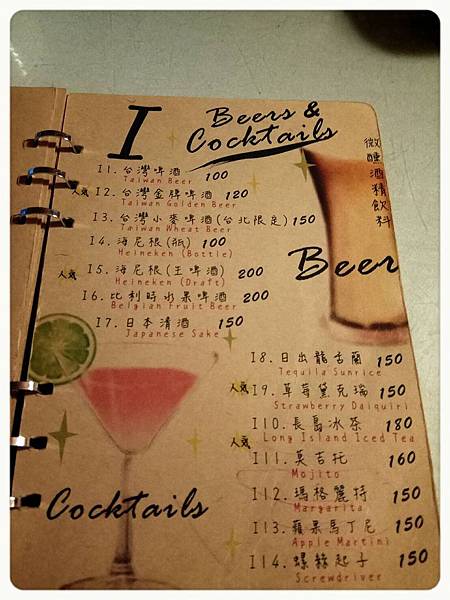 I
Beers &
Cocktails
微醺酒精飲料
I1. 台灣啤酒 100
Taiwan Beer
人氣 I2. 台灣金牌啤酒 120
Taiwan Golden Beer
I3. 台灣小麥啤酒(台北限定) 150
Taiwan Wheat Beer
I4. 海尼根(瓶) 100
Heineken (Bottle)
人氣 I5. 海尼根(生啤酒) 200
Heineken (Draft)
I6. 比利時水果啤酒 200
Belgian Fruit Beer
I7. 日本清酒 150
Japanese Sake
Beer
I8. 日出龍舌蘭 150
Tequila Sunrice
人氣 I9. 草莓黛克瑞 150
Strawberry Daiquiri
I10. 長島冰茶 180
Long Island Iced Tea
人氣 I11. 莫吉托 160
Mojito
I12. 瑪格麗特 150
Margarita
I13. 蘋果馬丁尼 150
Apple Martini
I14. 螺絲起子 150
Screwdriver
Cocktails